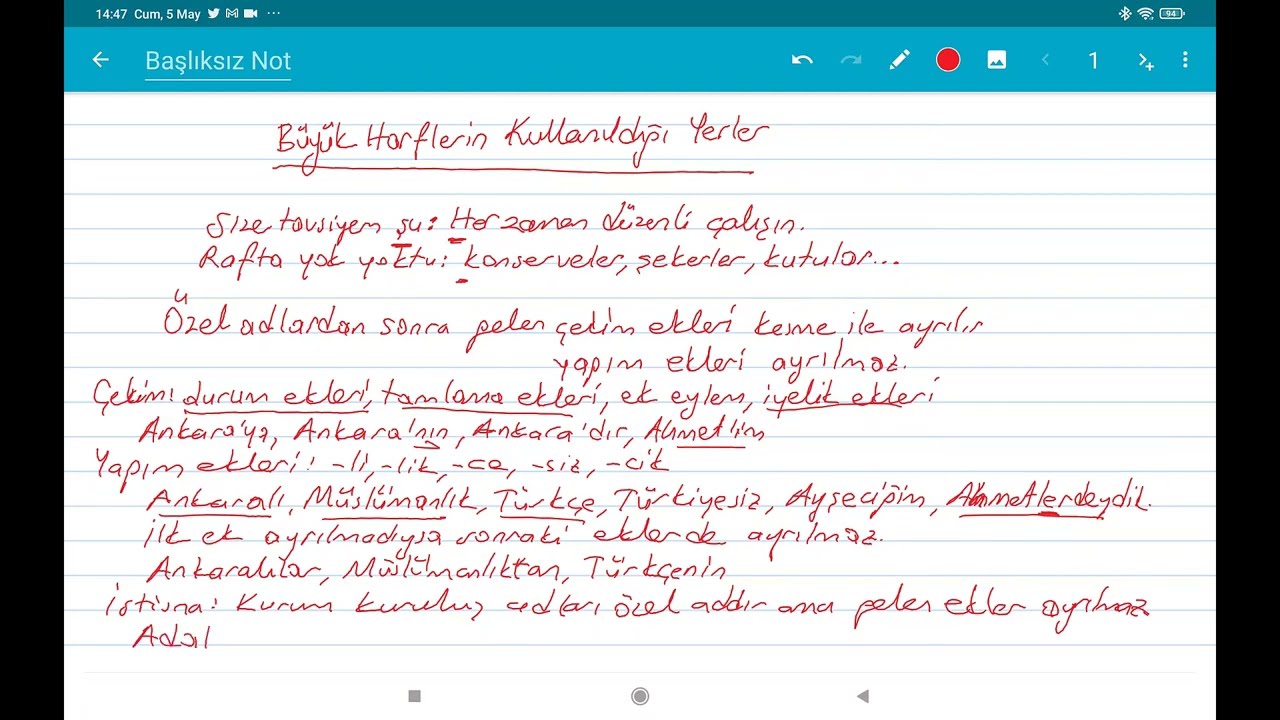 14:47 Cum, 5 May ...
94
Başlıksız Not
1
Büyük Harflerin Kullanıldığı Yerler
Size tavsiyem şu: Her zaman düzenli çalışın.
Rafta yok yoktu: konserveler, şekerler, kutular...
Özel adlardan sonra gelen çekim ekleri kesme ile ayrılır
yapım ekleri ayrılmaz.
Çekim: durum ekleri, tamlama ekleri, ek eylem, iyelik ekleri
Ankara'ya, Ankara'nın, Ankara'dır, Ahmet'im
Yapım ekleri: -li, -lik, -ce, -siz, -cik
Ankaralı, Müslümanlık, Türkçe, Türkiyesiz, Ayşeciğim, Ahmetlerdeydik.
İlk ek ayrılmadıysa sonraki ekler de ayrılmaz.
Ankaralılar, Müslümanlıktan, Türkçenin
İstisna: Kurum kuruluş adları özel addır ama gelen ekler ayrılmaz
Adal